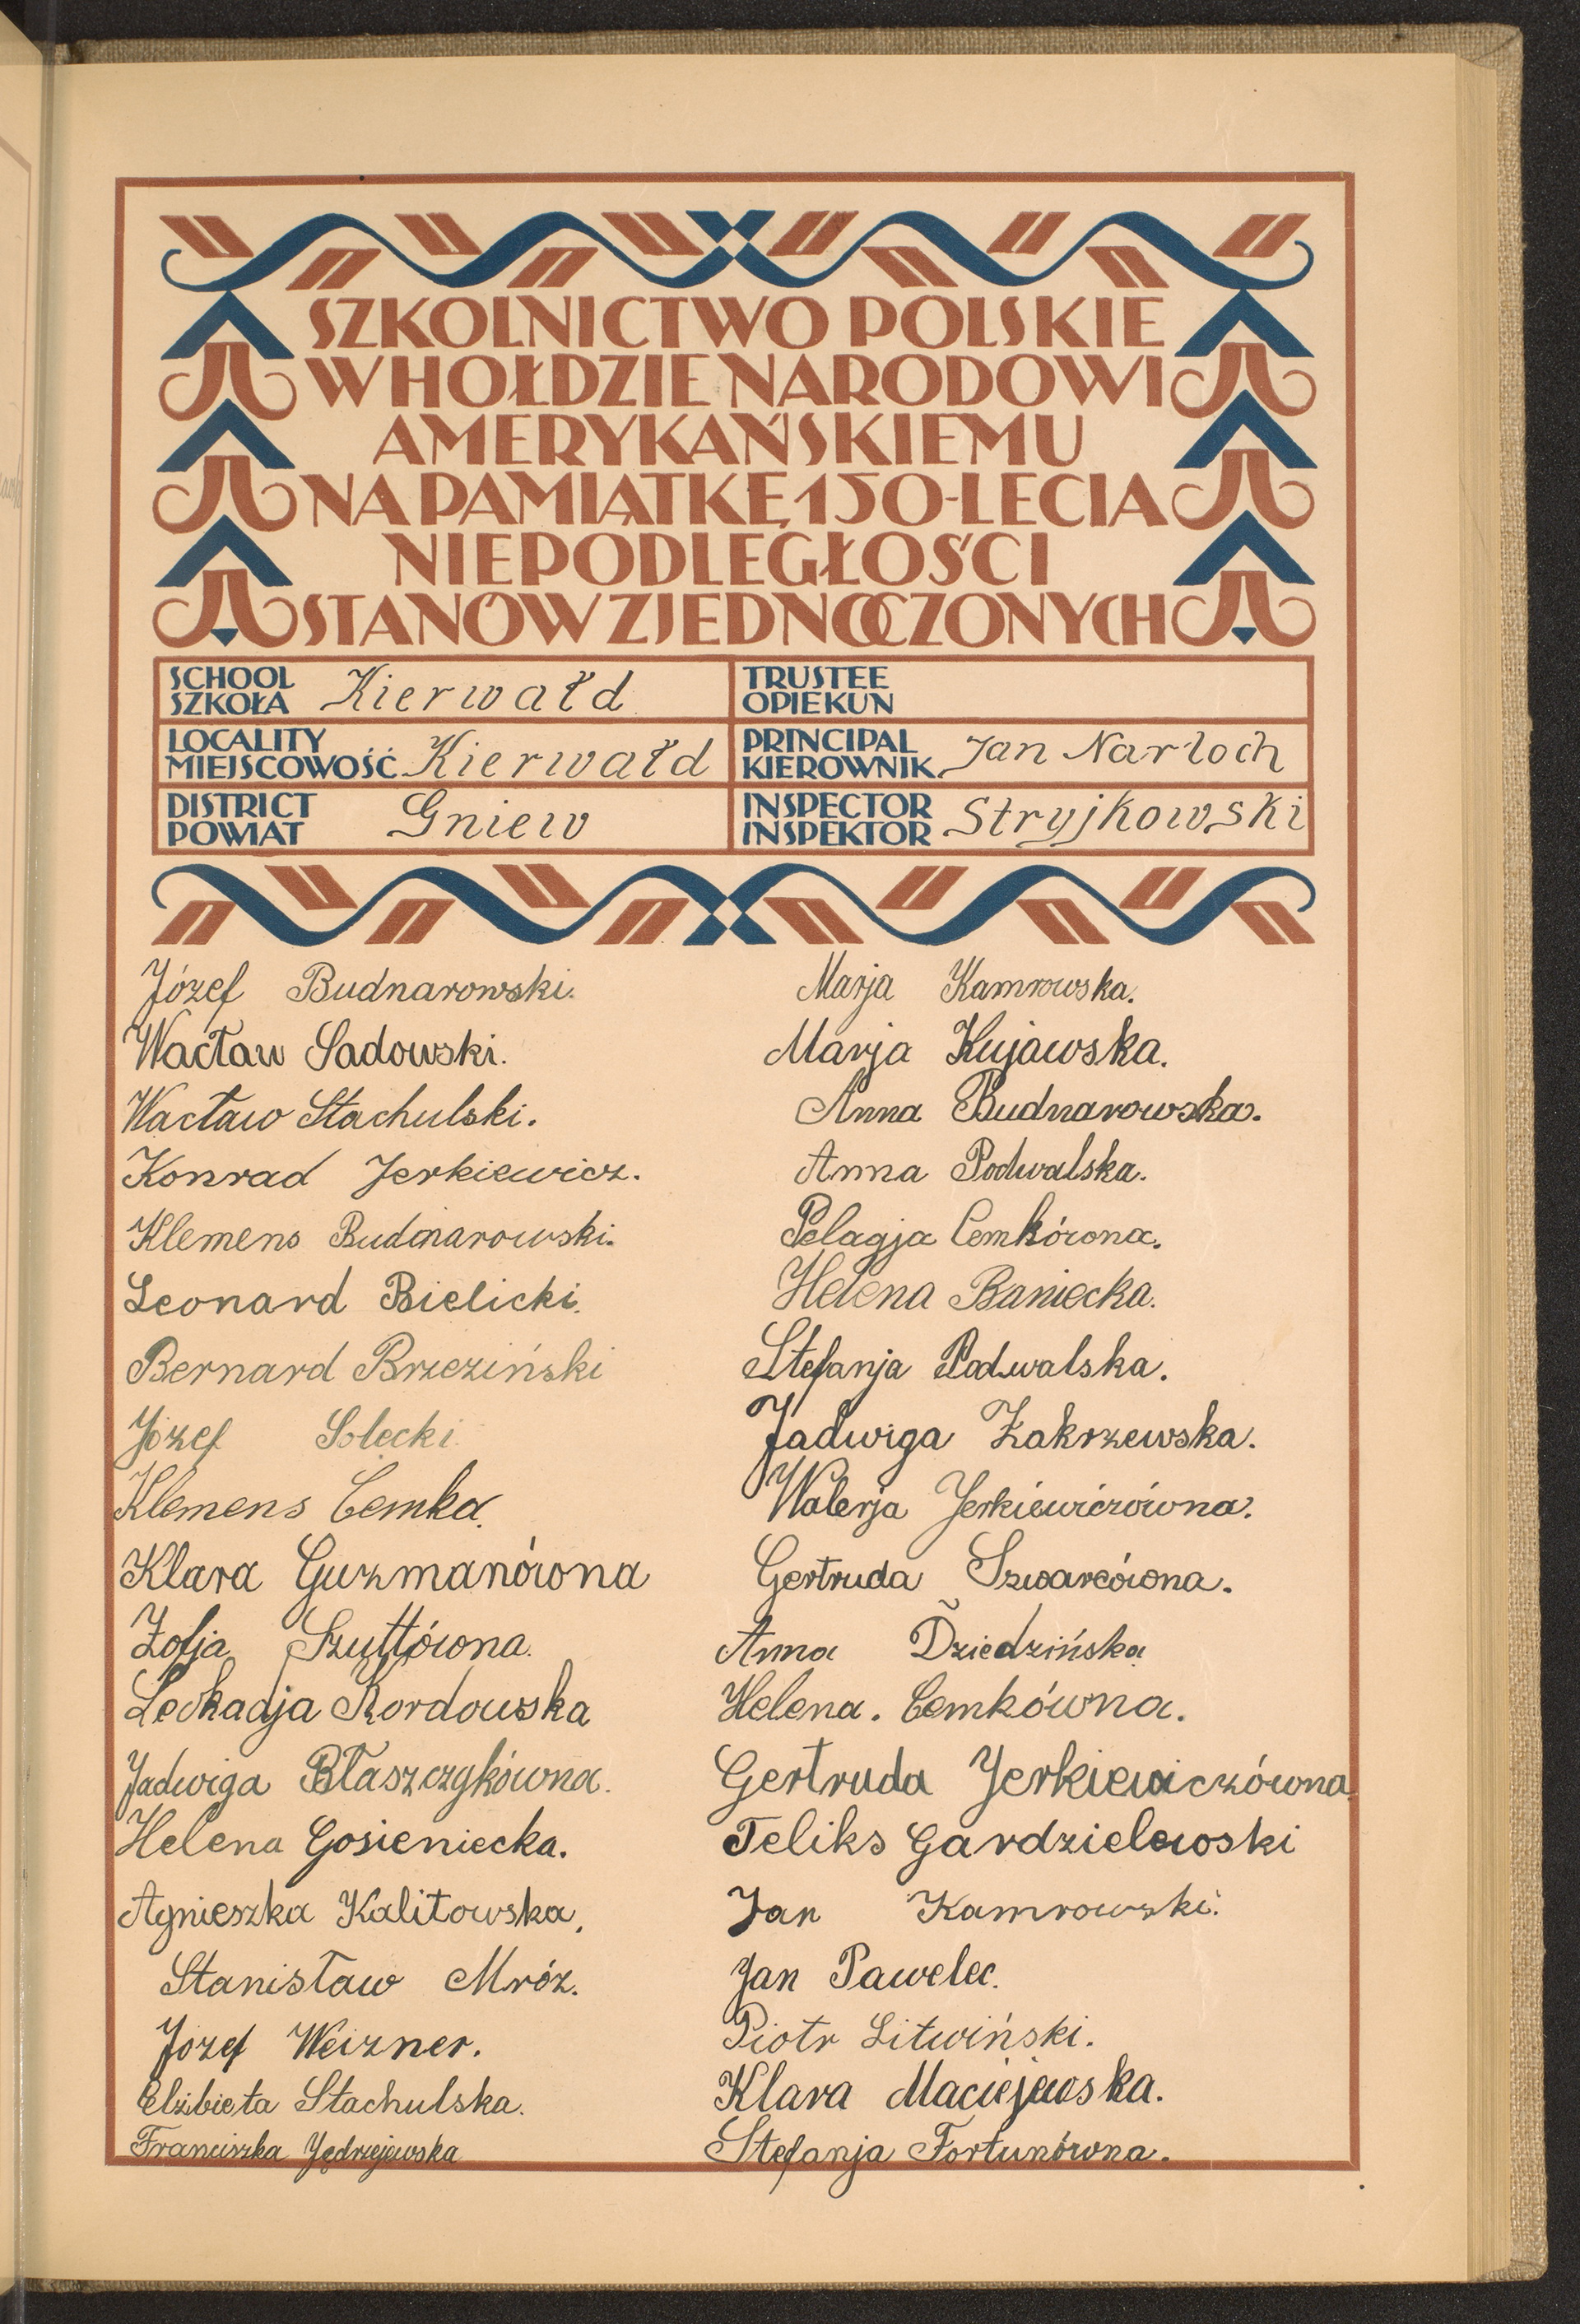 SZKOLNICTWO POLSKIE
W HOŁDZIE NARODOWI
AMERYKAŃSKIEMU
NA PAMIĄTKĘ 150-LECIA
NIEPODLEGŁOŚCI
STANÓW ZJEDNOCZONYCH
SCHOOL
SZKOŁA
Kierwałd
TRUSTEE
OPIEKUN
LOCALITY
MIEJSCOWOŚĆ
Kierwałd
PRINCIPAL
KIEROWNIK
Jan Narloch
DISTRICT
POWIAT
Gniew
INSPECTOR
INSPEKTOR
Stryjkowski
Józef Budnarowski.
Wacław Sadowski.
Wacław Stachulski.
Konrad Jerkiewicz.
Klemens Budnarowski.
Leonard Bielicki.
Bernard Brzeziński
Józef Solecki
Klemens Cemka.
Klara Guzmanówna
Zofja Szuttówna.
Leokadja Kordowska
Jadwiga Błaszczykówna.
Helena Gosieniecka.
Agnieszka Kalitowska.
Stanisław Mróz.
Józef Weizner.
Elżbieta Stachulska.
Franciszka Jędrzejewska
Marja Kamrowska.
Marja Kujawska.
Anna Budnarowska.
Anna Podwalska.
Pelagja Cemkówna.
Helena Baniecka.
Stefanja Podwalska.
Jadwiga Zakrzewska.
Walerja Jerkiewiczówna.
Gertruda Szwarcówna.
Anna Dziedzińska
Helena. Cemkówna.
Gertruda Jerkiewiczówna.
Feliks Gardzielewski
Jan Kamrowski.
Jan Pawelec.
Piotr Litwiński.
Klara Maciejewska.
Stefanja Fortunówna.